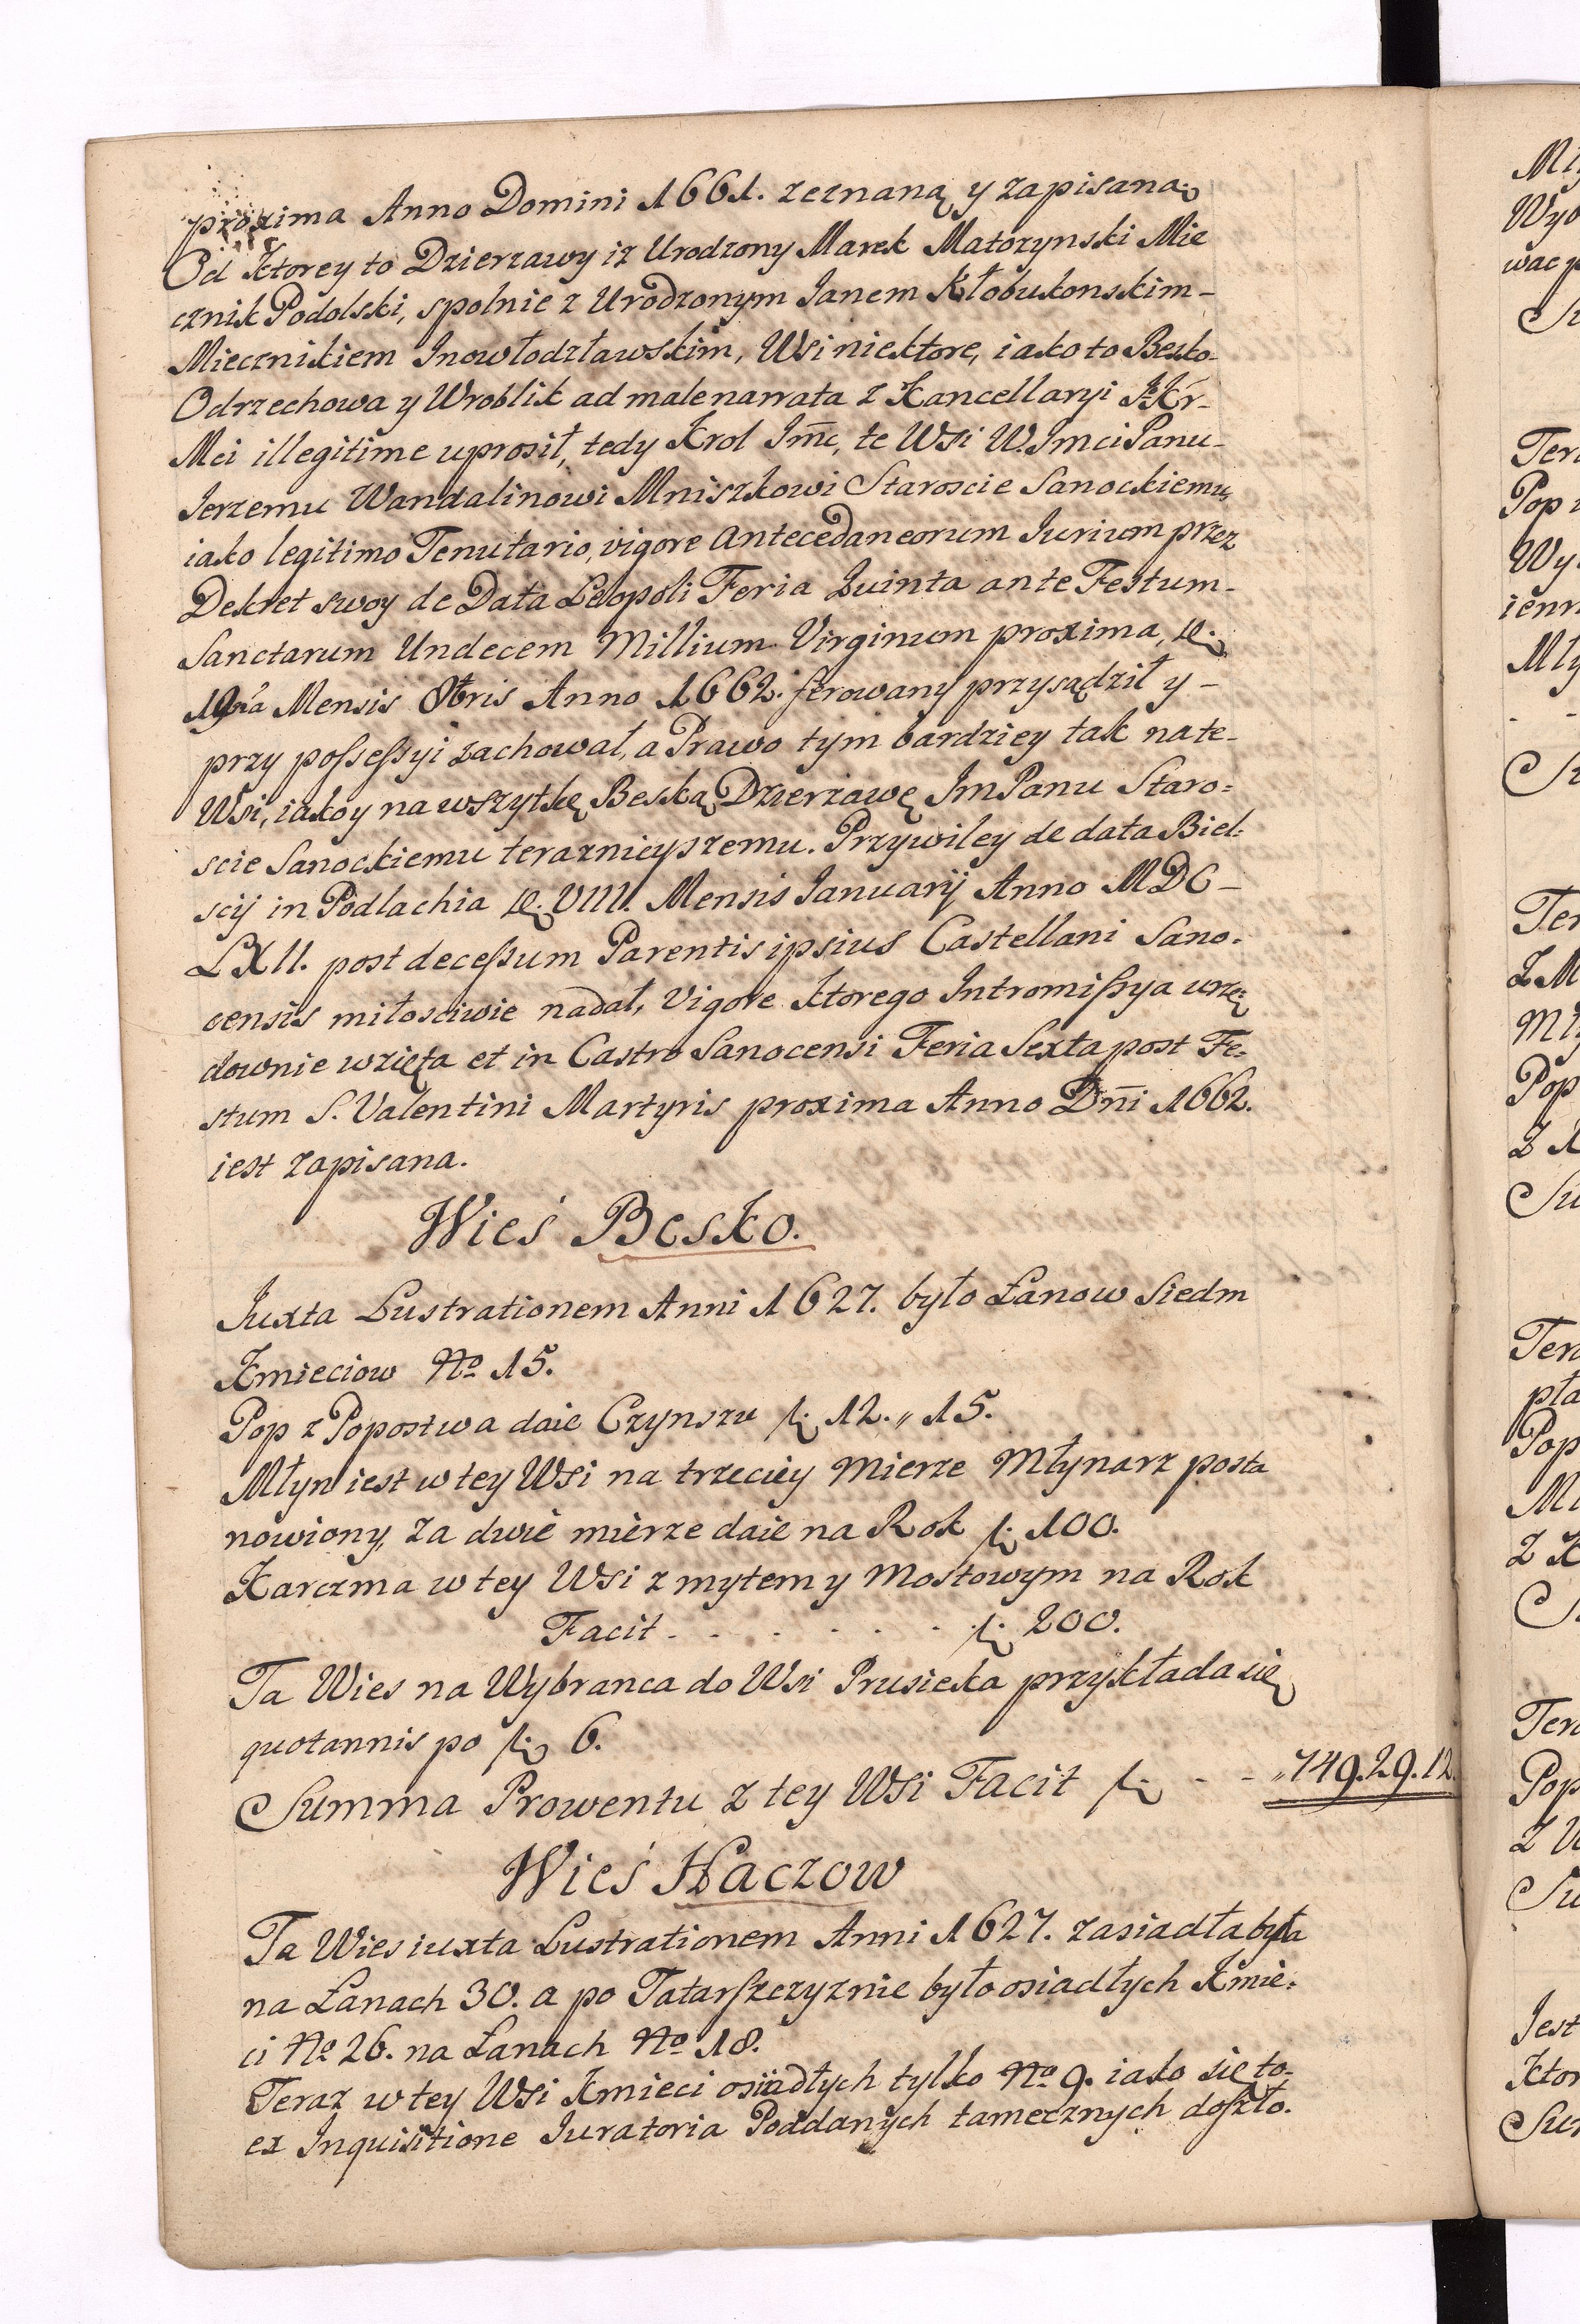 proxima Anno Domini 1661. zeznaną y zapisaną
Od ktorey to Dzierzawy iz Urodzony Marek Matozynski Mie
cznik Podolski, spolnie z Urodzonym Janem Kłobukonskim-
Miecznikiem Inowłodzławskim, Wsi niektore, iako to Besko-
Odrzechowa y Wroblik ad male narrata z Kancellaryi JKr-
Mci illegitime uprosił, tedy Krol Jmc, te Wsi W. Jmci Panu-
Jerzemu Wandalinowi Mniszkowi Staroscie Sanockiemu,
iako legitimo Tenutario, vigore Antecedaneorum Jurium przez
Dekret swoy de Data Leopoli Feria Quinta ante Festum-
Sanctarum Undecem Millium Virginum proxima, D.
19na Mensis 8bris Anno 1662. ferowany przysądził y-
przy possessyi zachował, a Prawo tym bardziey tak na te-
Wsi, iako y na wszytkę Beską Dzierzawę Jm Panu Staro=
scie Sanockiemu teraznieyszemu. Przywiley de data Biel=
scij in Podlachia D. VIII. Mensis Januarij Anno MDC-
LXII. post decessum Parentis ipsius Castellani Sano=
censis miłosciwie nadał, Vigore ktorego Intromissya urzę=
downie wzięta et in Castro Sanocensi Feria Sexta post Fe=
stum S. Valentini Martyris proxima Anno Dni 1662.
iest zapisana.
Wieś Besko.
Juxta Lustrationem Anni 1627. było Łanow Siedm
Kmieciow No 15.
Pop z Popostwa daie Czynszu f. 12.,, 15.
Młyn iest w tey Wsi na trzeciey Mierze Młynarz posta
nowiony, za dwie mierze daie na Rok f. 100.
Karczma w tey Wsi z mytem y Mostowym na Rok
Facit - - - - - - - f. 200.
Ta Wies na Wybranca do Wsi Prusieka przykłada się
quotannis po f. 6.
Summa Prowentu z tey Wsi Facit f. - - ,,749.29.12.
Wieś Haczow
Ta Wies iuxta Lustrationem Anni 1627. zasiadła była
na Łanach 30. a po Tatarszczyznie było osiadłych Kmie=
ci No 26. na Łanach No 18.
Teraz w tey Wsi Kmieci osiadłych tylko No 9. iako się to-
ex Inquisitione Juratoria Poddanych tamecznych doszło.